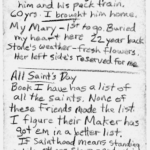 him and his pack train.
60 yrs. I brought him home.
My Mary - 1st to go. Buried
my heart here 22 year back
Stole's weather - fresh flowers.
Her left side's reserved for me.
All Saint's Day
Book I have has a list of
all the saints. None of
these friends made his list
I figure their Maker has
got 'em in a better list.
If Sainthood means standing